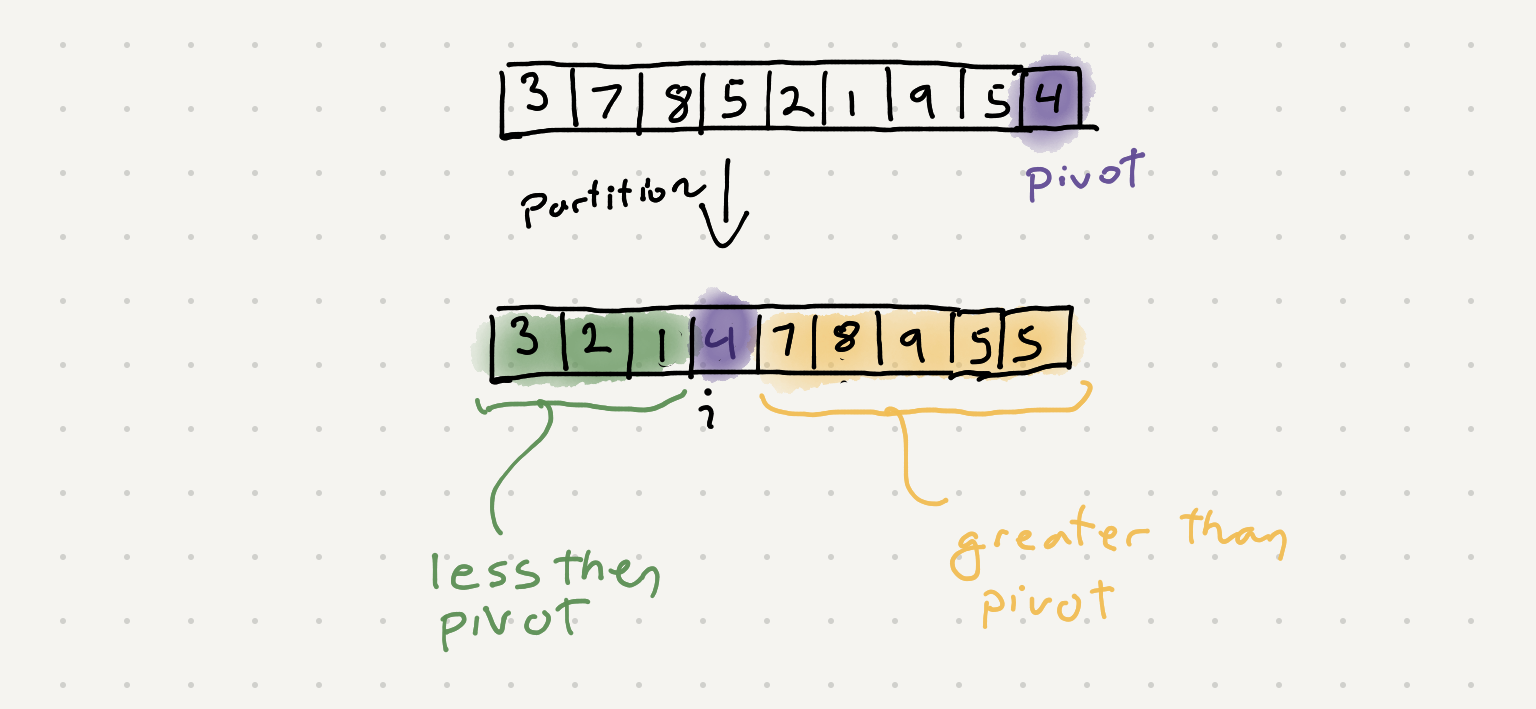 3 7 8 5 2 1 9 5 4
pivot
Partition
3 2 1 4 7 8 9 5 5
i
less then
pivot
greater than
pivot